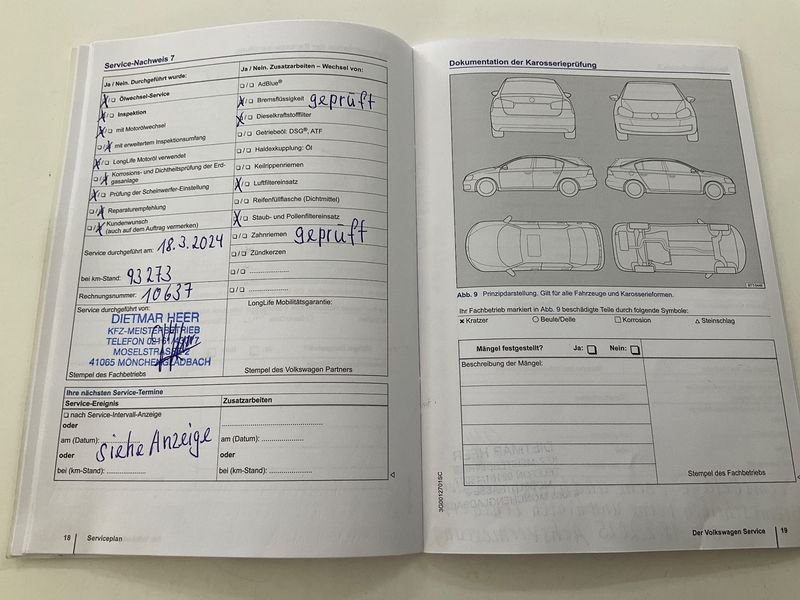 Service-Nachweis 7
Ja / Nein. Durchgeführt wurde:
X/❑ Ölwechsel-Service
X/❑ Inspektion
X/❑ mit Motorölwechsel
❑/X mit erweitertem Inspektionsumfang
X/❑ LongLife Motoröl verwendet
❑/X Korrosions- und Dichtheitsprüfung der Erd-
gasanlage
X/❑ Prüfung der Scheinwerfer-Einstellung
❑/X Reparaturempfehlung
❑/X Kundenwunsch
(auch auf dem Auftrag vermerken)
Service durchgeführt am: 18.3.2024
bei km-Stand: 93273
Rechnungsnummer: 10637
Service durchgeführt von:
DIETMAR HEER
KFZ-MEISTERBETRIEB
TELEFON
MOSELSTRASSE
41065 MÖNCHENGLADBACH
Stempel des Fachbetriebs
Ja / Nein. Zusatzarbeiten – Wechsel von:
❑/❑ AdBlue®
X/❑ Bremsflüssigkeit geprüft
X/❑ Dieselkraftstofffilter
❑/❑ Getriebeöl: DSG®, ATF
❑/❑ Haldexkupplung: Öl
❑/❑ Keilrippenriemen
X/❑ Luftfiltereinsatz
❑/❑ Reifenfüllflasche (Dichtmittel)
X/❑ Staub- und Pollenfiltereinsatz
❑/❑ Zahnriemen geprüft
❑/❑ Zündkerzen
❑/❑ ....................
❑/❑ ....................
LongLife Mobilitätsgarantie:
Stempel des Volkswagen Partners
Ihre nächsten Service-Termine
Service-Ereignis
❑ nach Service-Intervall-Anzeige
oder
am (Datum): siehe Anzeige
oder
bei (km-Stand): ....................
Zusatzarbeiten
....................
am (Datum): ....................
oder
bei (km-Stand): ....................
18 Serviceplan
Dokumentation der Karosserieprüfung
Abb. 9 Prinzipdarstellung. Gilt für alle Fahrzeuge und Karosserieformen.
Ihr Fachbetrieb markiert in Abb. 9 beschädigte Teile durch folgende Symbole:
× Kratzer ○ Beule/Delle □ Korrosion △ Steinschlag
Mängel festgestellt? Ja: ❑ Nein: ❑
Beschreibung der Mängel:
Stempel des Fachbetriebs
3G0012701SC
Der Volkswagen Service 19